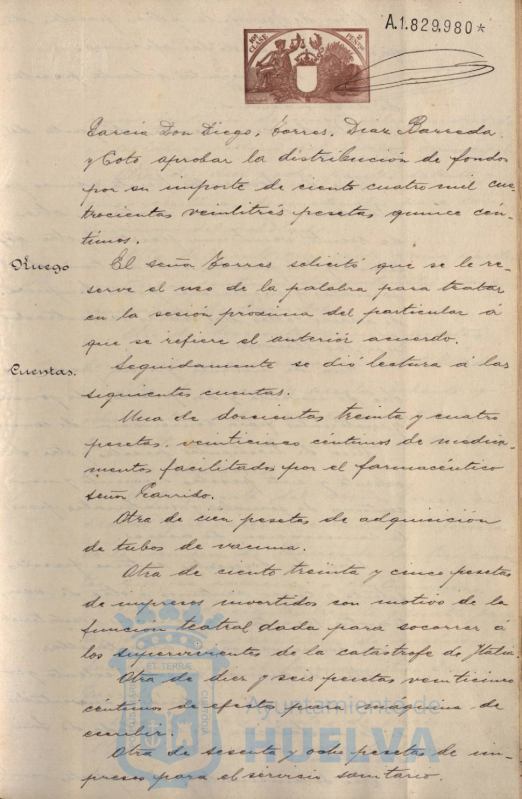 A.1.829,980*
10ª CLASE 2 PESETAS
Garcia Don Diego, Torres, Diaz Barreda
y Coto aprobar la distribución de fondos
por su importe de ciento cuatro mil cua-
trocientas veintitrés pesetas quince cén-
timos.
Ruego
El señor Torres solicitó que se le re-
serve el uso de la palabra para tratar
en la sesión próxima del particular á
que se refiere el anterior acuerdo.
Cuentas.
Seguidamente se dió lectura á las
siguientes cuentas.
Una de doscientas treinta y cuatro
pesetas, veinticinco céntimos de medica-
mentos facilitados por el farmacéutico
señor Garrido.
Otra de cien pesetas de adquisición
de tubos de vacuna.
Otra de ciento treinta y cinco pesetas
de impresos invertidos con motivo de la
funcion teatral dada para socorrer á
los supervivientes de la catástrofe de Italia.
Otra de diez y seis pesetas veinticinco
céntimos de efectos para la maquina de
escribir.
Otra de sesenta y ocho pesetas de im-
presos para el servicio sanitario.
ET TERRAE
Ayuntamiento de
HUELVA